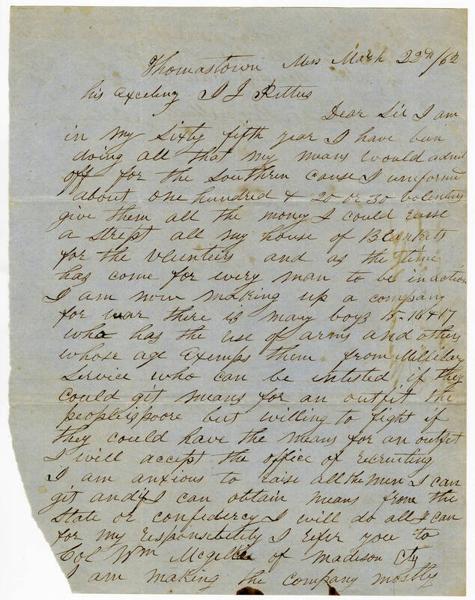 Thomastown Miss March 22nd/62
his Exceleny J J Pettus
Dear Sir I am
in my Sixty fifth year I have ben
doing all that my means would admit
off for the Southern cause I uniformed
about one hundred & 20 or 30 volenteers
give them all the money I could raise
& stript all my house of Blankets
for the Vlunteers and as the time
has come for every man to be in action
I am now making up a company
for war there is many boys 15-16 & 17
who has the use of arms and others
whose age Exemps them from Military
Service who can be intisted if they
could get means for an outfit the
people is poore but willing to fight if
they could have the means for an outfit
I will accept the office of recruiting
I am anxious to raise all the men I can
git and if I can obtain means from the
State or confedercy I will do all I can
for my responsibility I refer you to
Col Wm of Madison Cty
I am making the company mostly